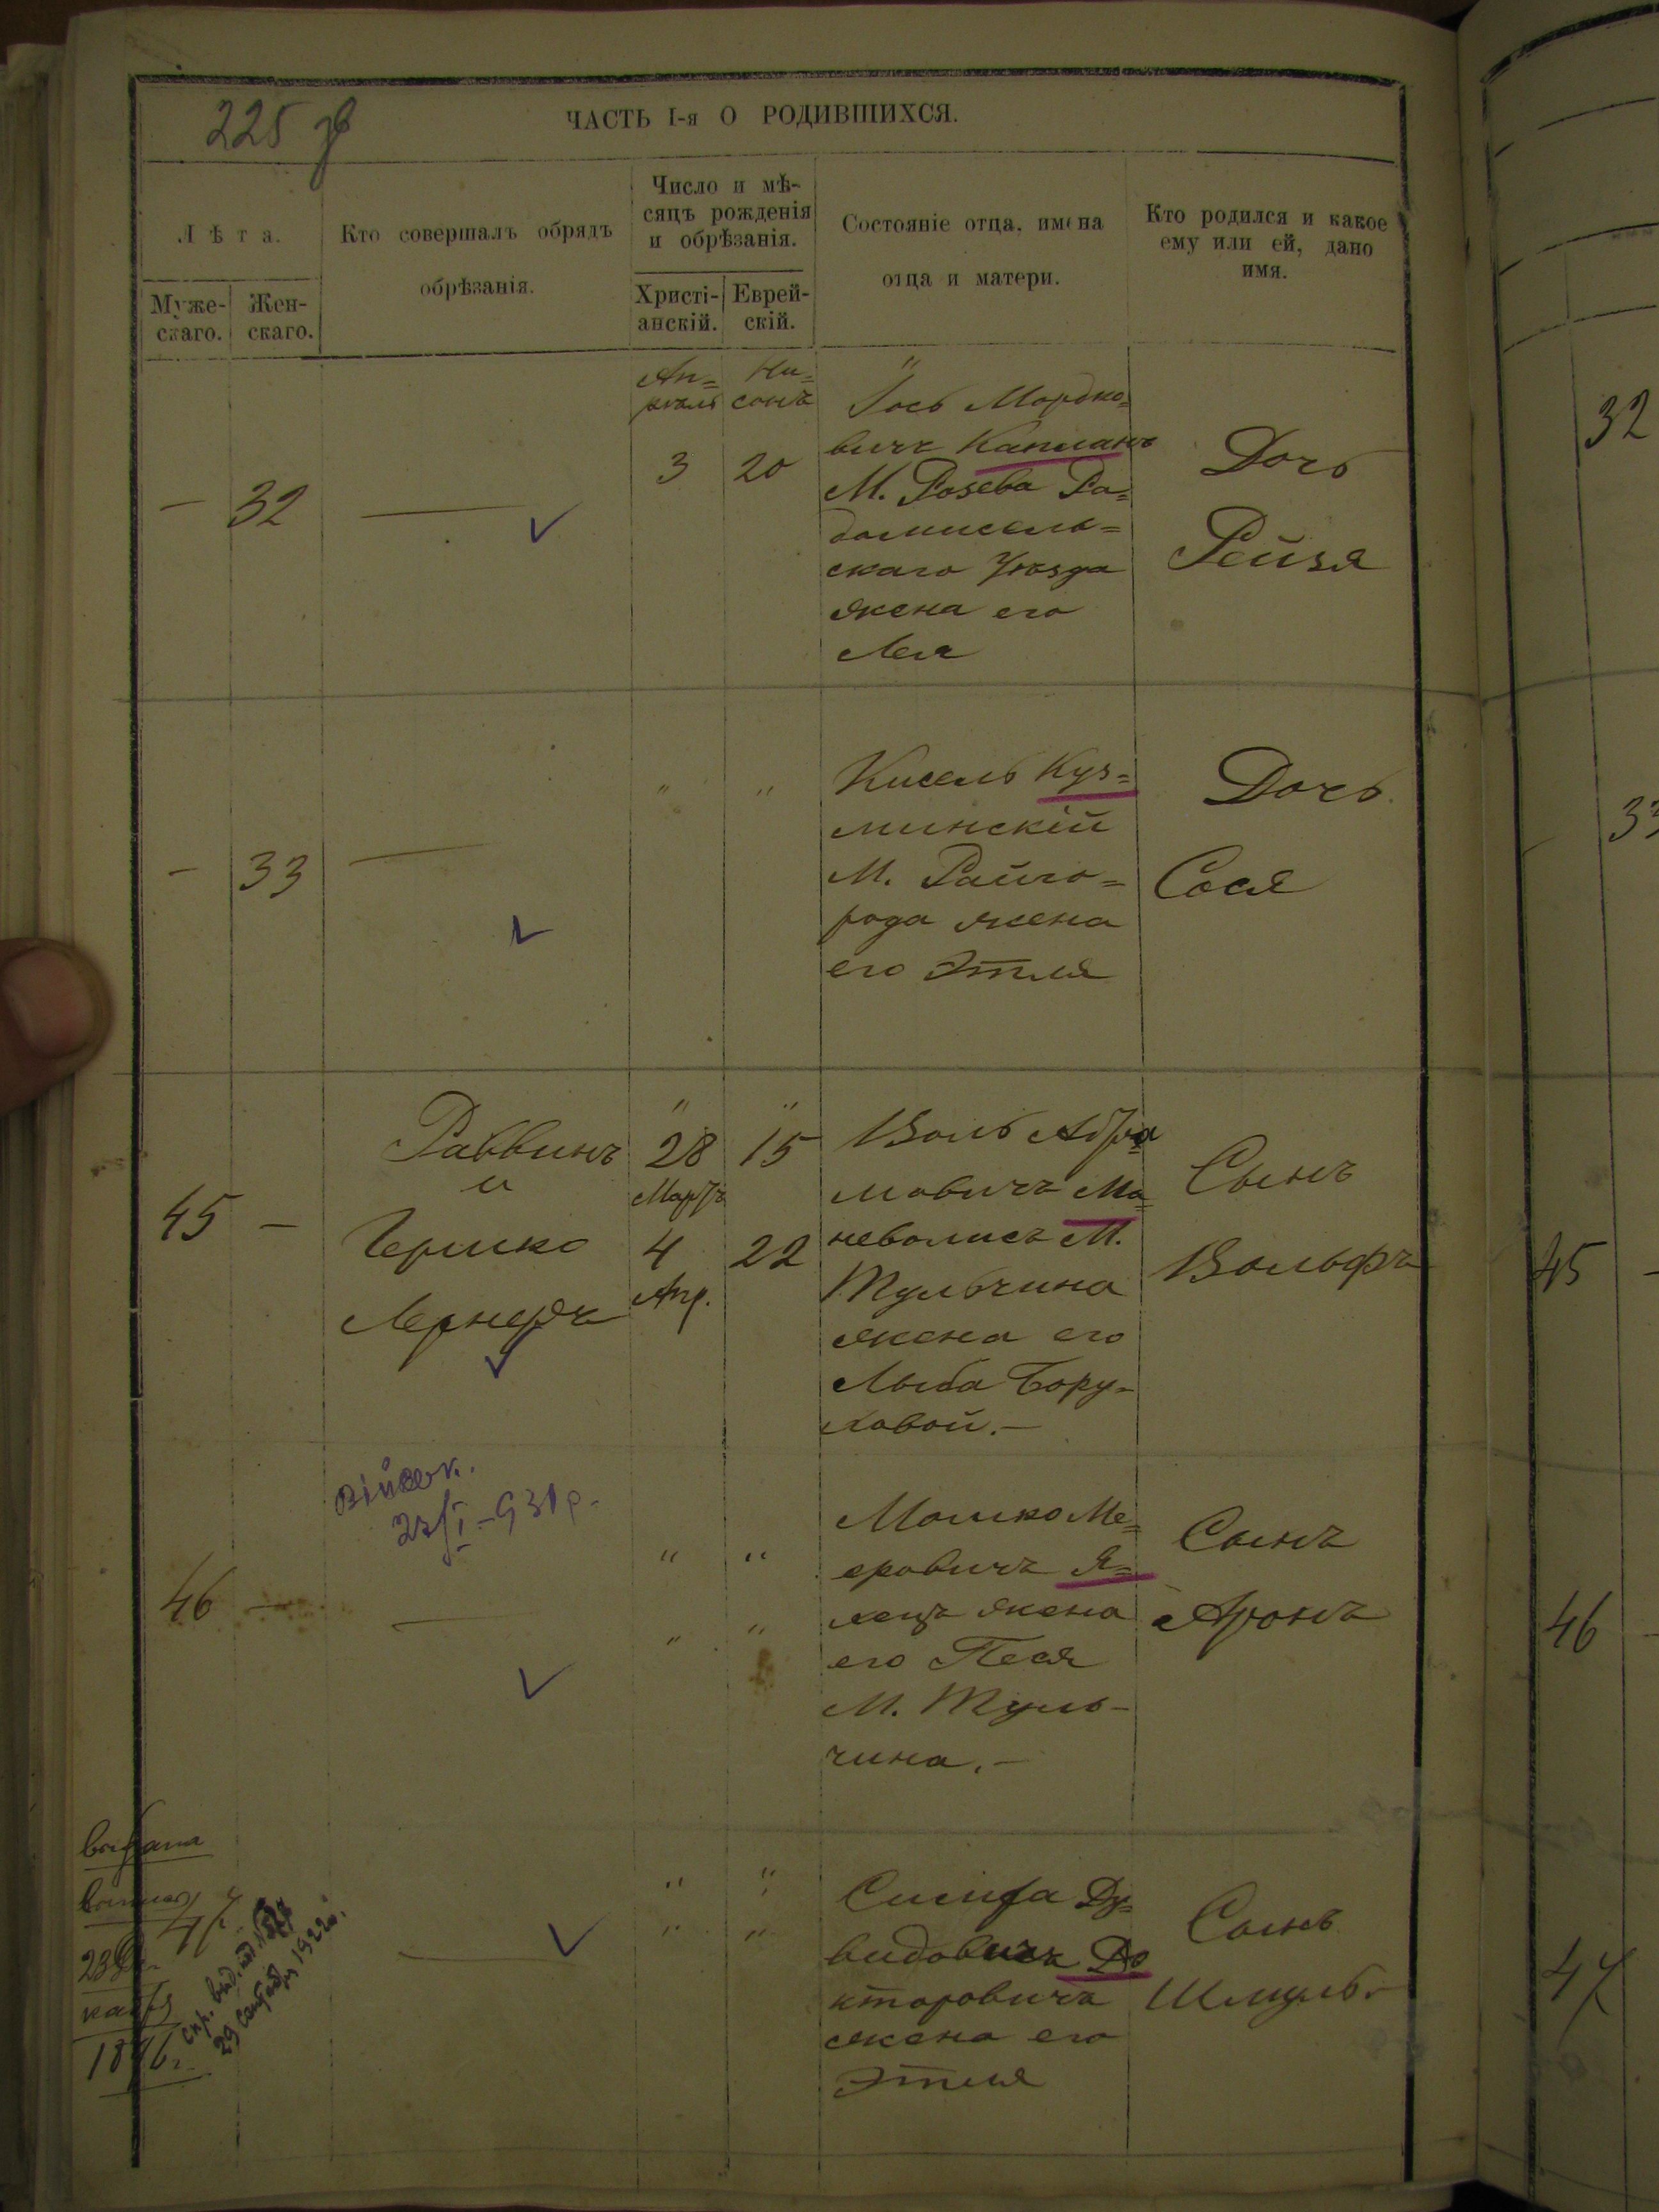 225 зв
ЧАСТЬ I-я О РОДИВШИХСЯ.
Лѣта.
Муже-
скаго.
Жен-
скаго.
Кто совершалъ обрядъ
обрѣзанія.
Число и мѣ-
сяцъ рожденія
и обрѣзанія.
Христі-
анскій.
Еврей-
скій.
Состояніе отца, имена
отца и матери.
Кто родился и какое
ему или ей, дано
имя.
Ап=
рѣль
Ни=
санъ
— 32
3 20
Іось Мордко=
вичъ Капланъ
М. Розева Ра=
домисель=
скаго Уѣзда
жена его
Лея
Дочь
Рейзя
— 33
" "
Кисель Куз=
минскій
М. Райго=
рода жена
его Этля
Дочь
Сося
45 —
Раввинъ
и
Гершко
Лернеръ
" "
28 15
Мартъ
4 22
Апр.
Воль Абра
мовичъ Ма=
неволисъ М.
Тульчина
жена его
Лыба Бору-
ховой.—
Сынъ
Вольфъ
46 —
23/I-931 р.
" "
" "
Мошко Ме=
еровичъ Я=
жена
его Песя
М. Туль-
чина.—
Сынъ
Аронъ
47
23
1896 г.
29 1922.
" "
" "
Ду=
видовичъ До
кторовичъ
жена его
Этля
Сынъ
Шмуль.
32
33
45 —
46 —
47